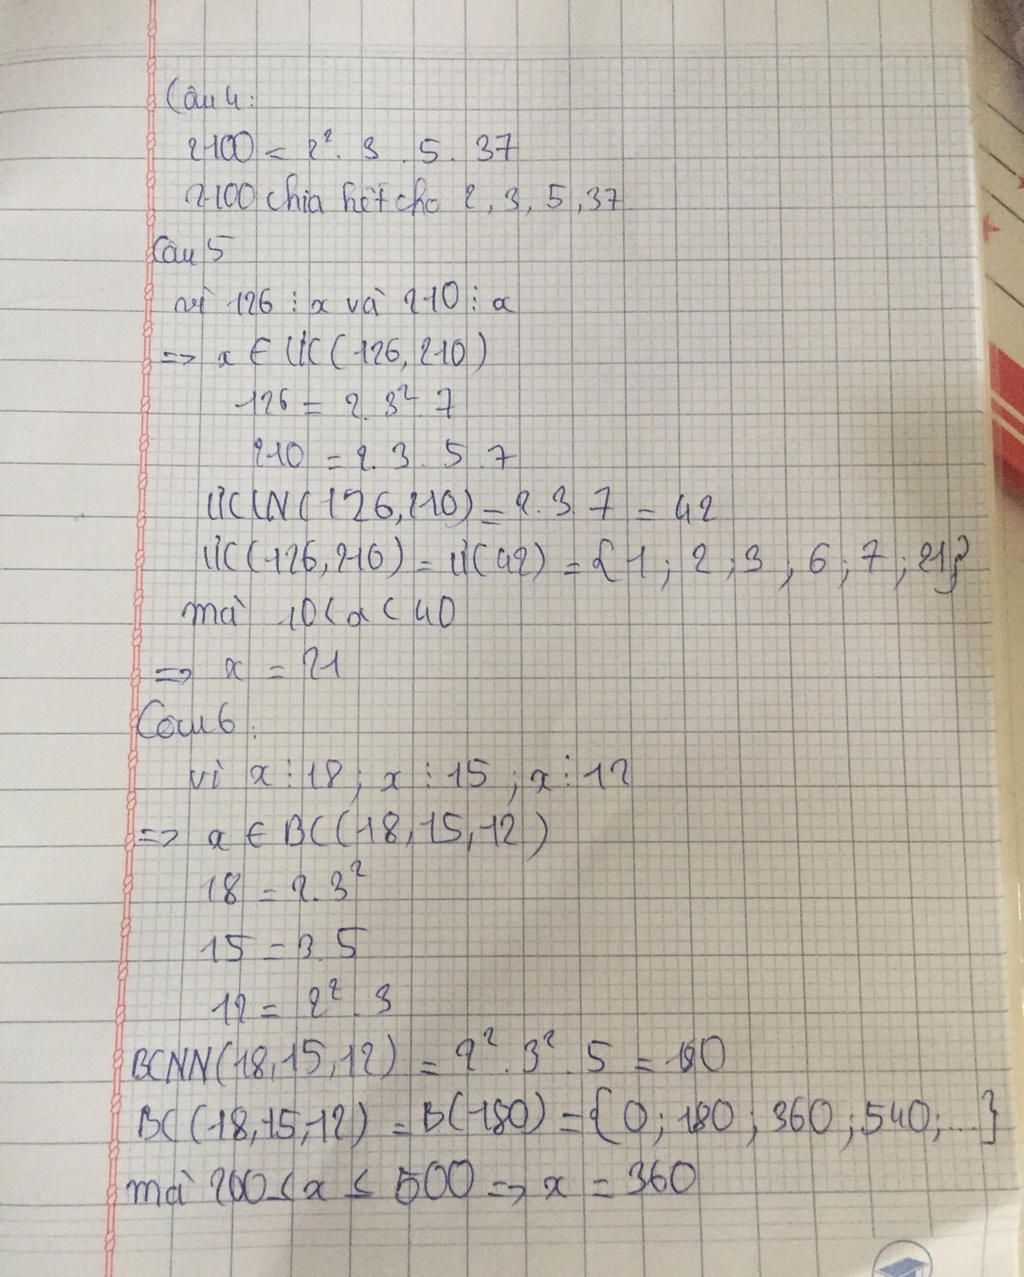 Câu 4:
2100 = 2². 3 . 5 . 37
2100 chia hết cho 2, 3, 5, 37
Câu 5
vì 126 ⋮ x và 210 ⋮ x
=> x ∈ ƯC (126, 210)
126 = 2. 3². 7
210 = 2. 3. 5. 7
ƯCLN (126, 210) = 2. 3. 7 = 42
ƯC (126, 210) = Ư(42) = { 1; 2; 3; 6; 7; 21}
mà 10 < x < 40
=> x = 21
Câu 6:
vì x ⋮ 18; x ⋮ 15; x ⋮ 12
=> x ∈ BC (18, 15, 12)
18 = 2. 3²
15 = 3. 5
12 = 2². 3
BCNN (18, 15, 12) = 2². 3². 5 = 180
BC (18, 15, 12) = B(180) = {0; 180; 360; 540; ...}
mà 200 ≤ x ≤ 500 => x = 360